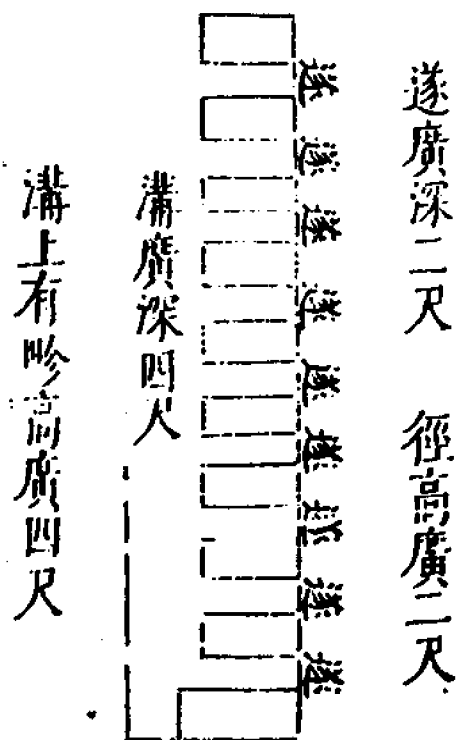 遂廣深二尺 徑高廣二尺
遂
遂
遂
遂
遂
遂
遂
遂
遂
溝廣深四尺
溝上有畛高廣四尺